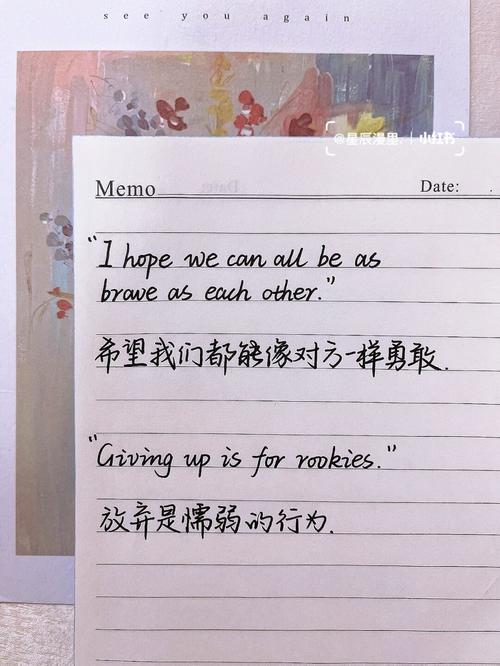 see you again
@星辰漫里. 小红书
Memo
Date: .
"I hope we can all be as
brave as each other."
希望我们都能像对方一样勇敢.
"Giving up is for rookies."
放弃是懦弱的行为.